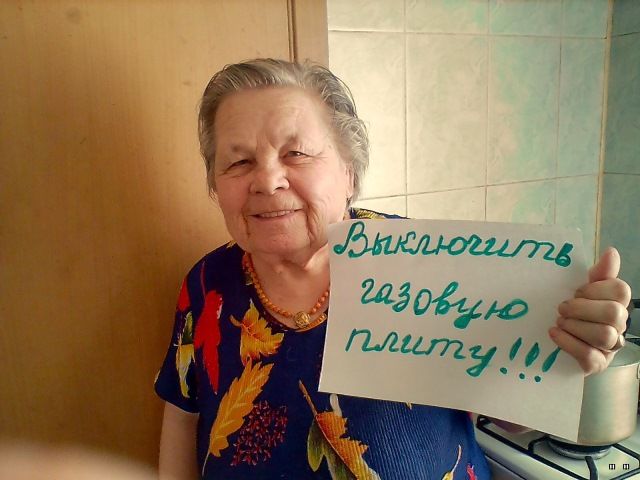 Выключить
газовую
плиту!!!